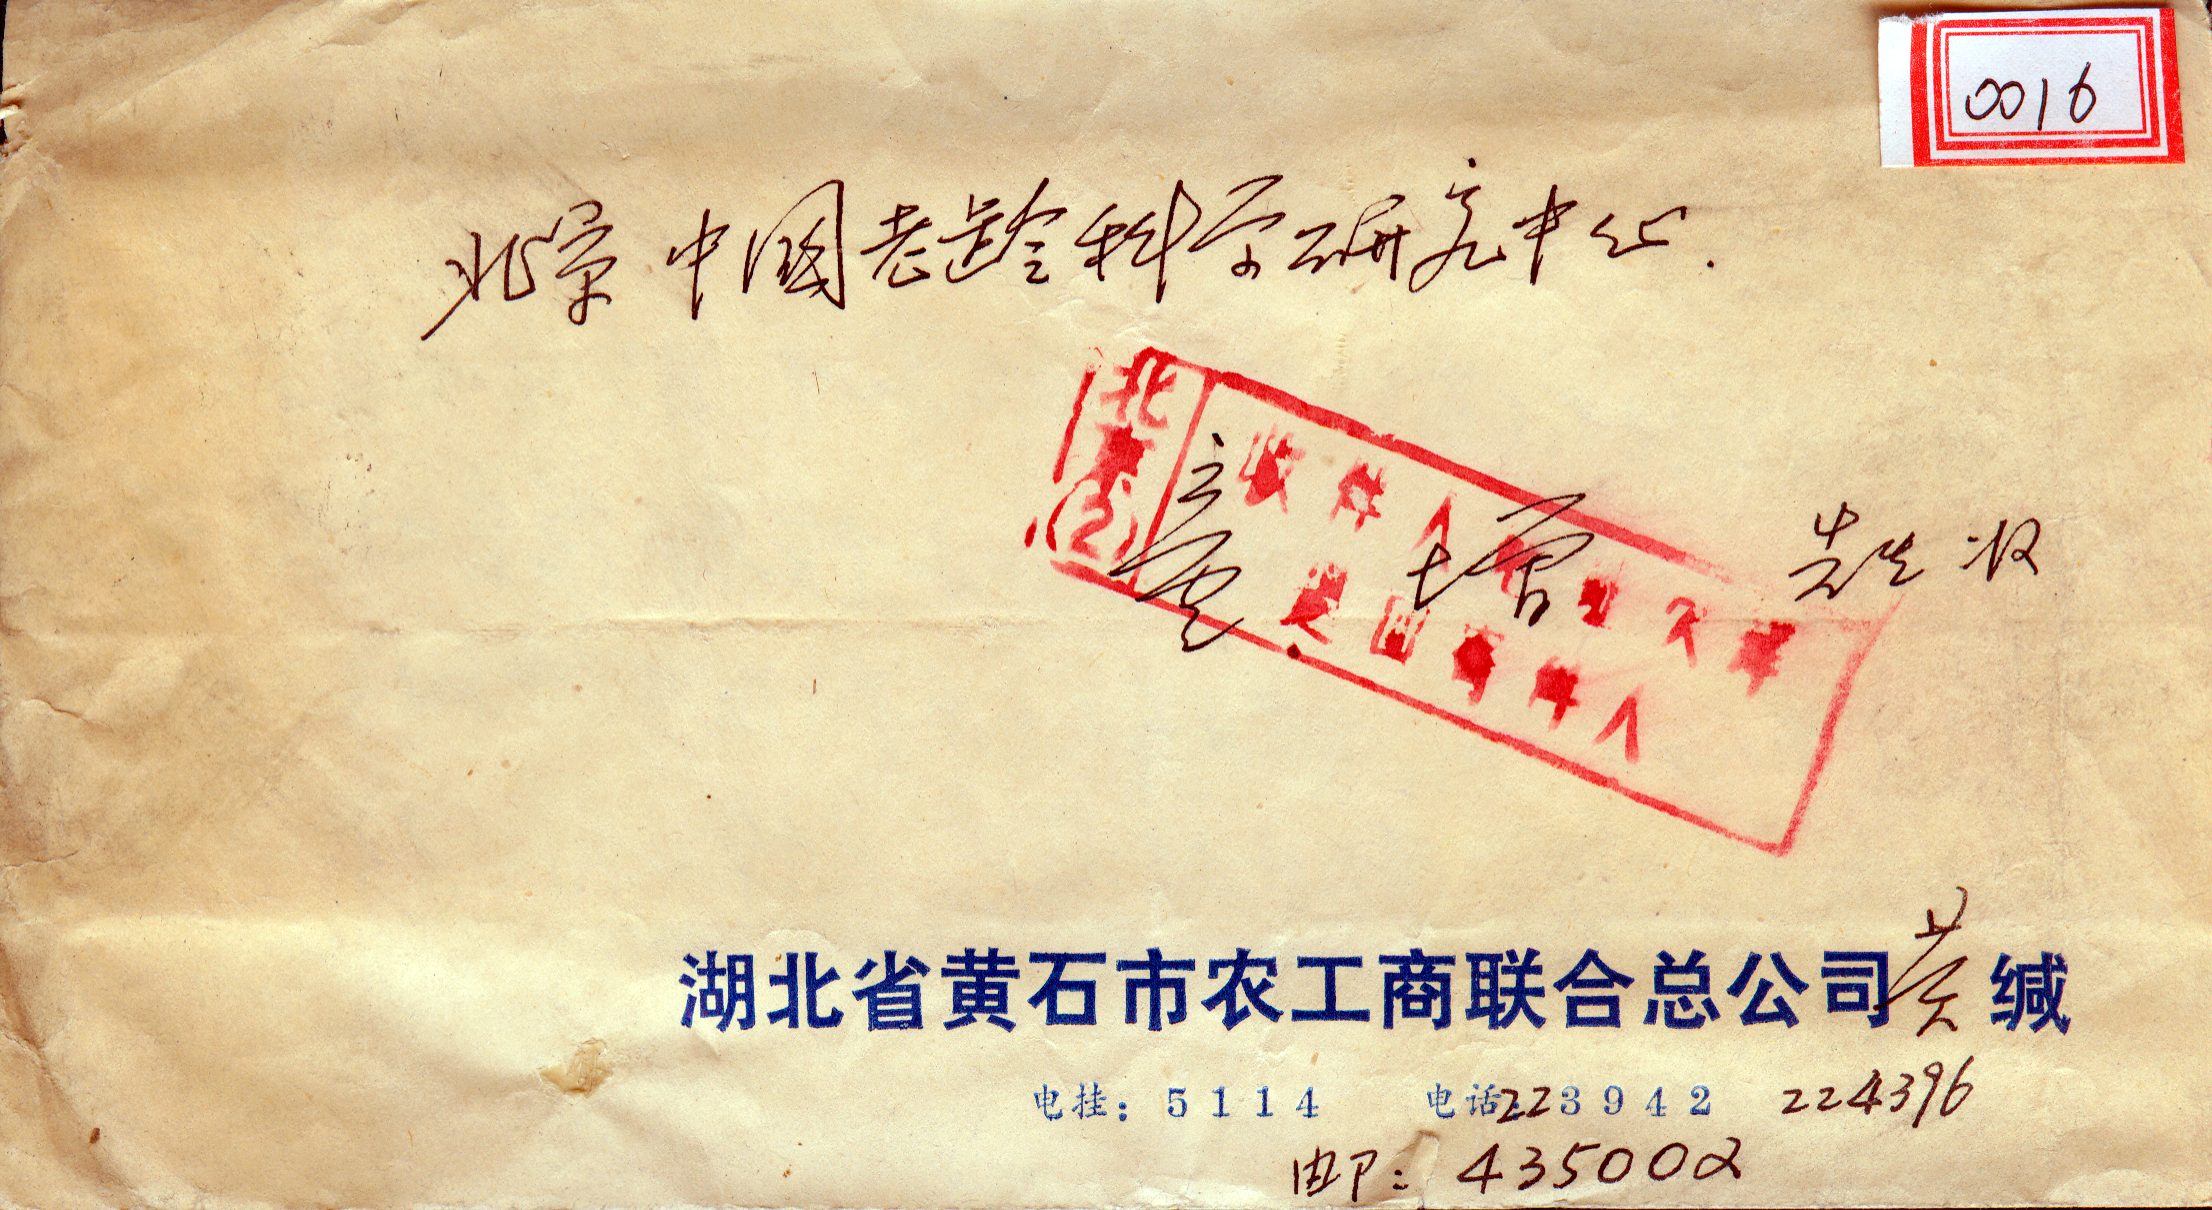 0016
北京 中国老龄科学研究中心.
北京(2)
收件人地址欠详
退回寄件人
童增 先生收
湖北省黄石市农工商联合总公司黄缄
电挂:5114 电话:223942 224396
邮:435002